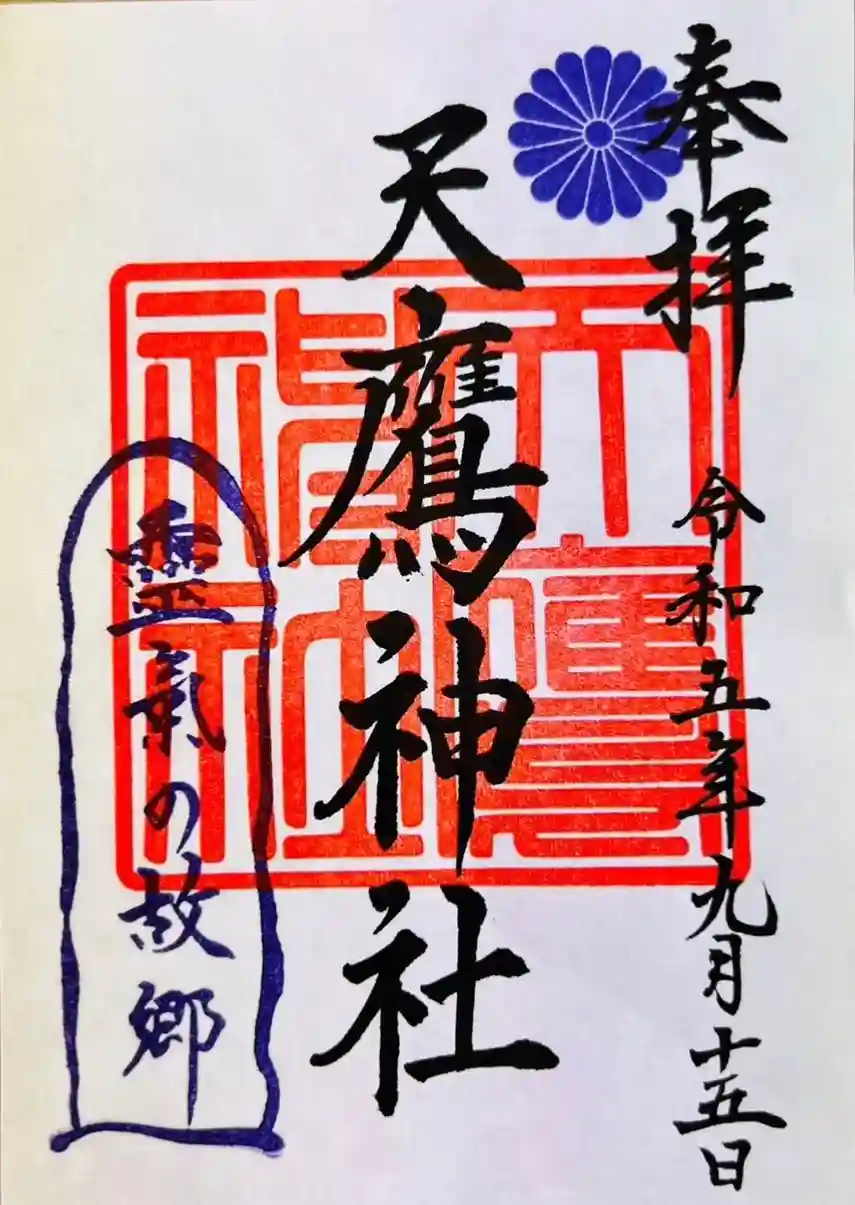 奉拝
令和五年九月十五日
天鷹神社
天鷹神社
靈氣の故郷